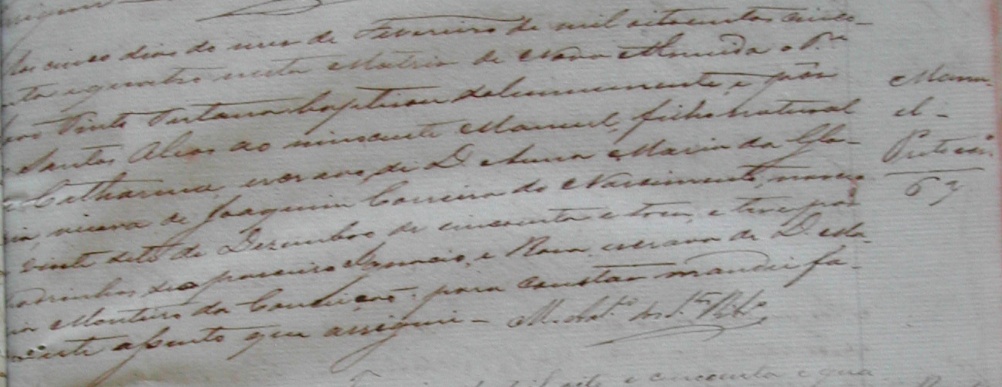 Aos cinco dias do mes de Fevereiro de mil oitocentos cinco-
enta e quatro nesta Matriz de Nova Almeida o Pe.
Pinto Santana baptisou solemnemente, e pôs
os Santos Oleos ao innocente Manuel, filho natural
Catharina, escrava de D. Anna Maria da Glo-
ria, viuva de Joaquim Correira do Nascimento, nasceo
vinte sete de Dezembro de cincoenta e tres, e teve por
padrinhos parceiro Ignacio, e Rosa, escrava de D.
Monteiro da Conceição, para constar mandei fa-
este assento que assignei -
Manu-
el -
Preto